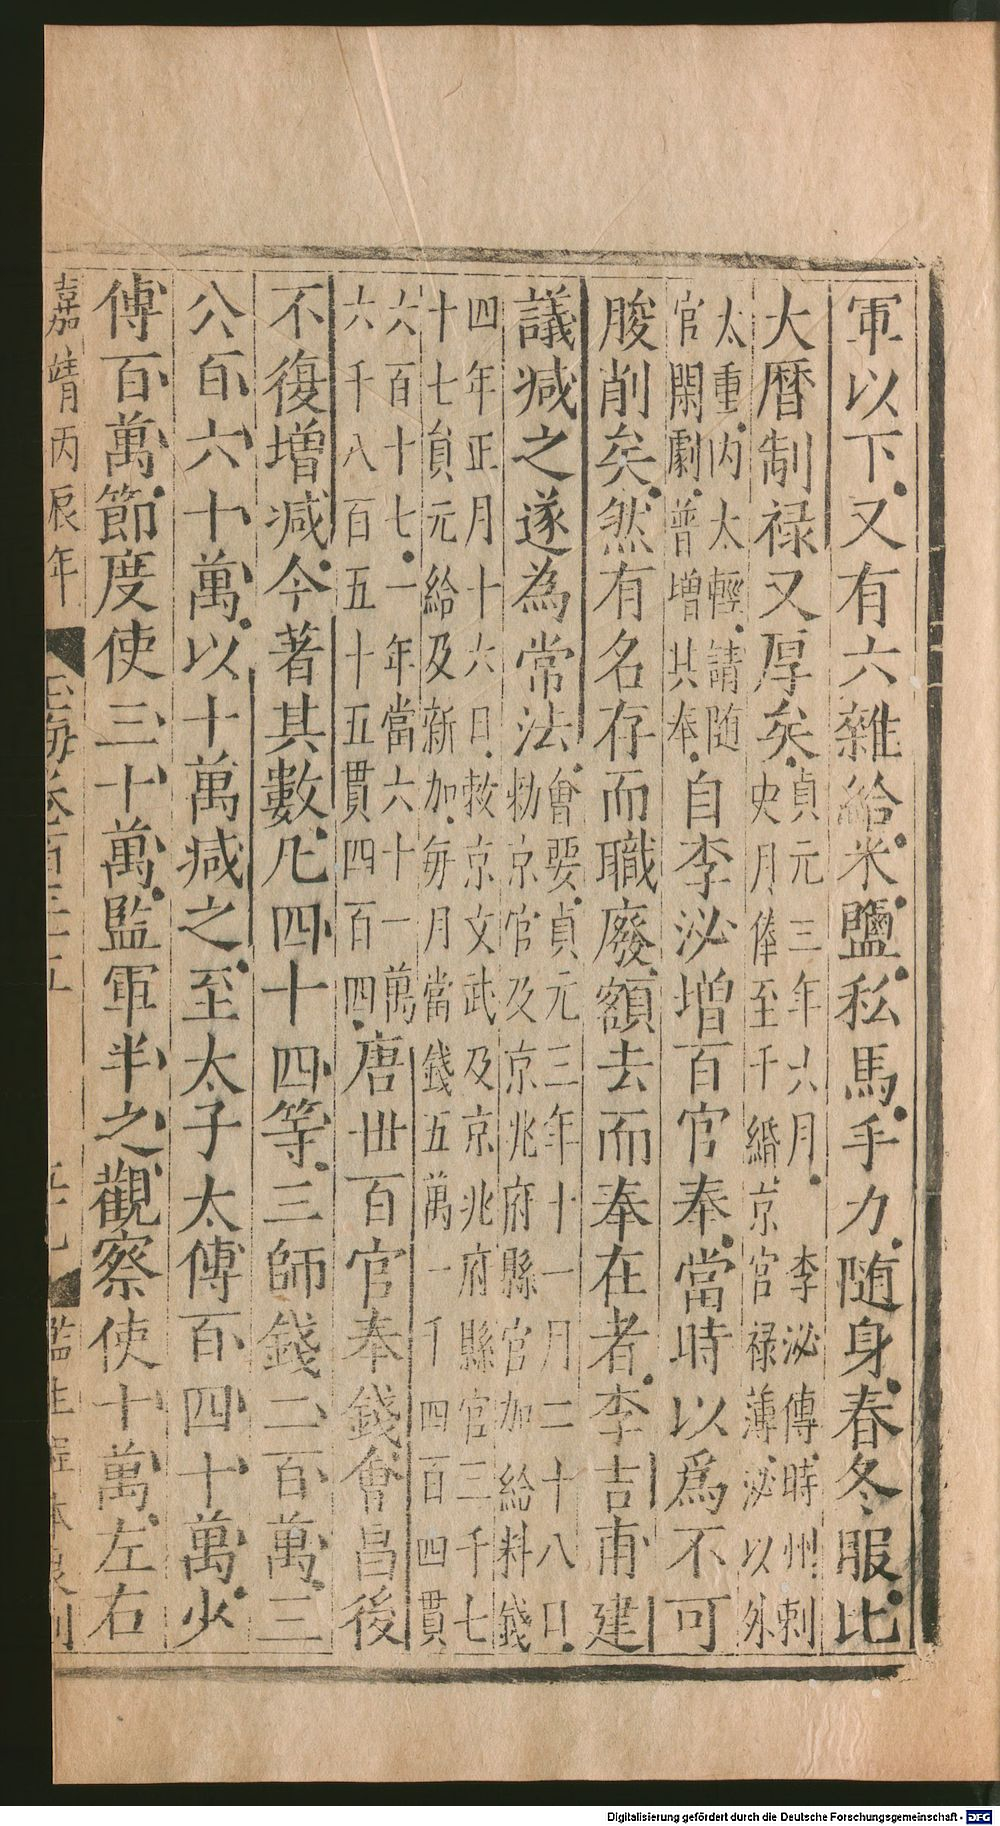 軍以下又有六雜給米鹽私馬手力随身春冬服比
大曆制禄又厚矣貞元三年六月李泌傳時州刺
史月俸至千緡京官禄薄泌以外
太重内太輕請随
官閑劇普增其奉自李泌增百官奉當時以爲不可
朘削矣然有名存而職廢額去而奉在者李吉甫建
議减之遂為常法會要貞元三年十一月二十八日
勑京官及京兆府縣官加給料錢
四年正月十六日敕京文武及京兆府縣官三千七
十七員元給及新加毎月當錢五萬一千四百四貫
六百十七一年當六十一萬
六千八百五十五貫四百四唐世百官奉錢會昌後
不復增减今著其數凡四十四等三師錢二百萬三
公百六十萬以十萬减之至太子太傅百四十萬少
傅百萬節度使三十萬監軍半之觀察使十萬左右
嘉靖丙辰年
玉海卷百三十五
監生
刊
Digitalisierung gefördert durch die Deutsche Forschungsgemeinschaft - DFG